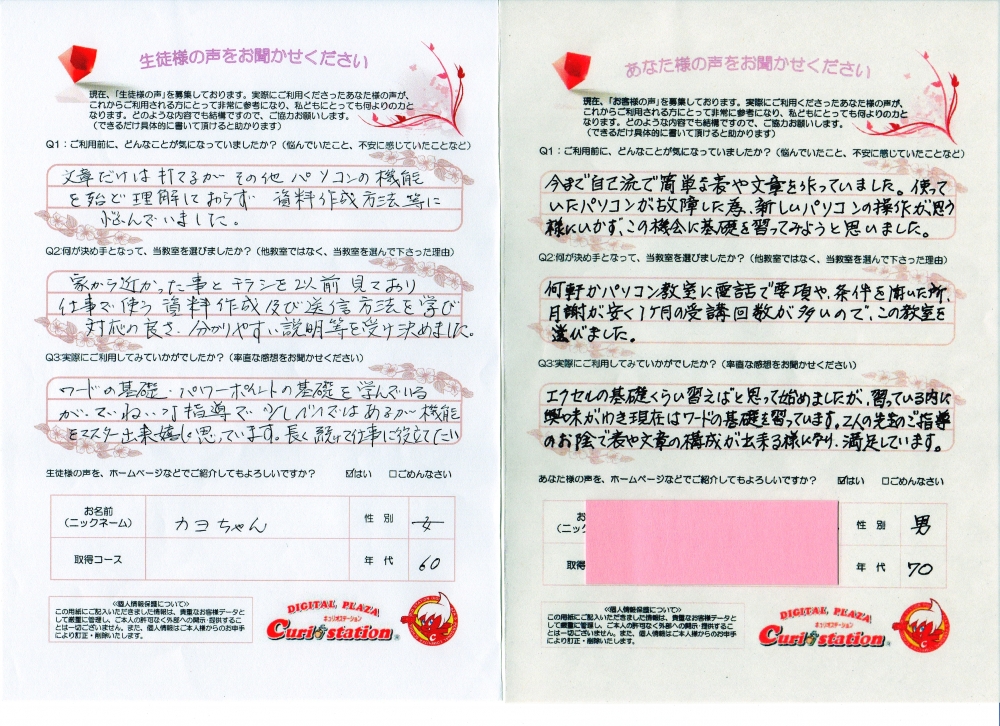 生徒様の声をお聞かせください
現在、「生徒様の声」を募集しております。実際にご利用くださったあなた様の声が、
これからご利用される方にとって非常に参考になり、私どもにとっても何よりの力と
なります。どのような内容でも結構ですので、ご協力お願いします。
（できるだけ具体的に書いて頂けると助かります）
Q1：ご利用前に、どんなことが気になっていましたか？（悩んでいたこと、不安に感じていたことなど）
文章だけは打てるが その他 パソコンの機能
を殆ど理解しておらず 資料作成方法等に
悩んでいました。
Q2:何が決め手となって、当教室を選びましたか？（他教室ではなく、当教室を選んで下さった理由）
家から近かった事と チラシを以前見ており
仕事で使う資料作成及び送信方法を学び
対応の良さ、分かりやすい説明等を受け決めました。
Q3:実際にご利用してみていかがでしたか？（率直な感想をお聞かせください）
ワードの基礎・パワーポイントの基礎を学んでいる
が、ていねいな指導で 少しづつではあるが機能
をマスター出来嬉しく思っています。長く続けて仕事に役立てたい
生徒様の声を、ホームページなどでご紹介してもよろしいですか？ ☑はい □ごめんなさい
お名前
（ニックネーム）
カヨちゃん
性 別
女
取得コース
年 代
60
≪個人情報保護について≫
この用紙にご記入いただきました情報は、貴重なお客様データと
して厳重に管理し、ご本人の許可なく外部への開示・提供するこ
とは一切ございません。また、個人情報はご本人様からのお申手
により訂正・削除いたします。
DIGITAL PLAZA
キュリオステーション
Curio station
あなた様の声をお聞かせください
現在、「お客様の声」を募集しております。実際にご利用くださったあなた様の声が、
これからご利用される方にとって非常に参考になり、私どもにとっても何よりの力と
なります。どのような内容でも結構ですので、ご協力お願いします。
（できるだけ具体的に書いて頂けると助かります）
Q1：ご利用前に、どんなことが気になっていましたか？（悩んでいたこと、不安に感じていたことなど）
今まで自己流で簡単な表や文章を作っていました。使って
いたパソコンが故障した為、新しいパソコンの操作が思う
様にいかず、この機会に基礎を習ってみようと思いました。
Q2:何が決め手となって、当教室を選びましたか？（他教室ではなく、当教室を選んで下さった理由）
何軒かパソコン教室に電話で要項や、条件を聞いた所、
月謝が安く1ヶ月の受講回数が多いので、この教室を
選びました。
Q3:実際にご利用してみていかがでしたか？（率直な感想をお聞かせください）
エクセルの基礎くらい習えばと思って始めましたが、習っている内に
興味がわき現在はワードの基礎を習っています。2人の先生のご指導
のお陰で表や文章の構成が出来る様になり、満足しています。
あなた様の声を、ホームページなどでご紹介してもよろしいですか？ ☑はい □ごめんなさい
お
（ニック
性 別
男
取得
年 代
70
≪個人情報保護について≫
この用紙にご記入いただきました情報は、貴重なお客様データと
して厳重に管理し、ご本人の許可なく外部への開示・提供するこ
とは一切ございません。また、個人情報はご本人様からのお申手
により訂正・削除いたします。
DIGITAL PLAZA
キュリオステーション
Curio station